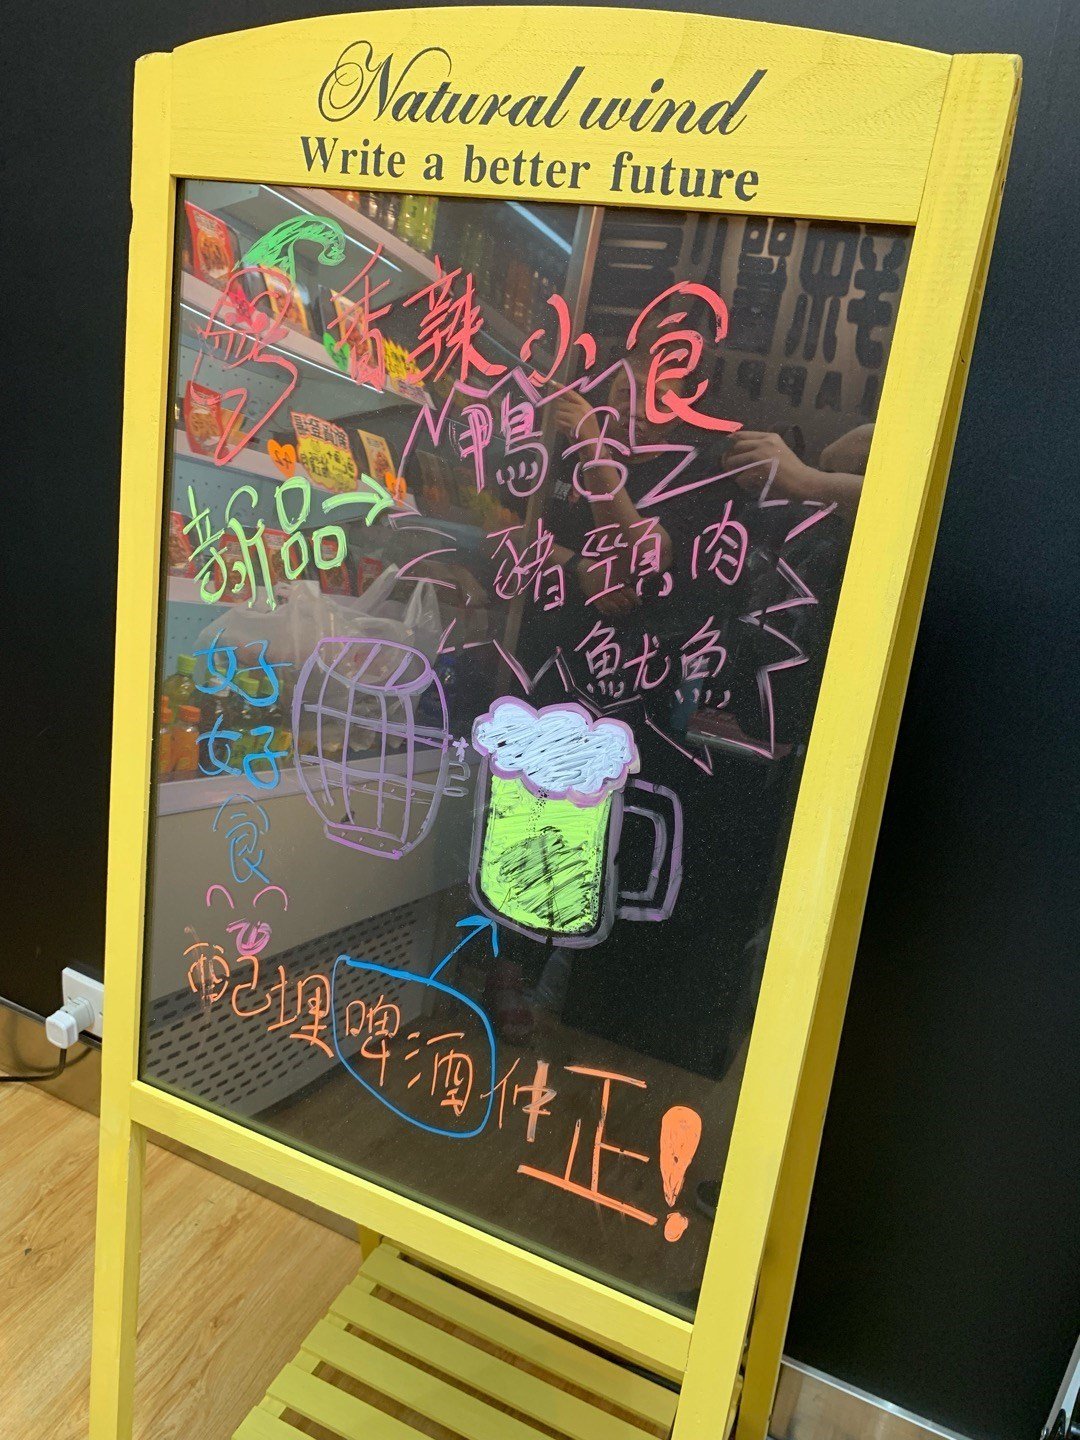 Natural wind
Write a better future
香辣小食
鴨舌
新品→
豬頸肉
魷魚
好好食
配埋啤酒仲正!